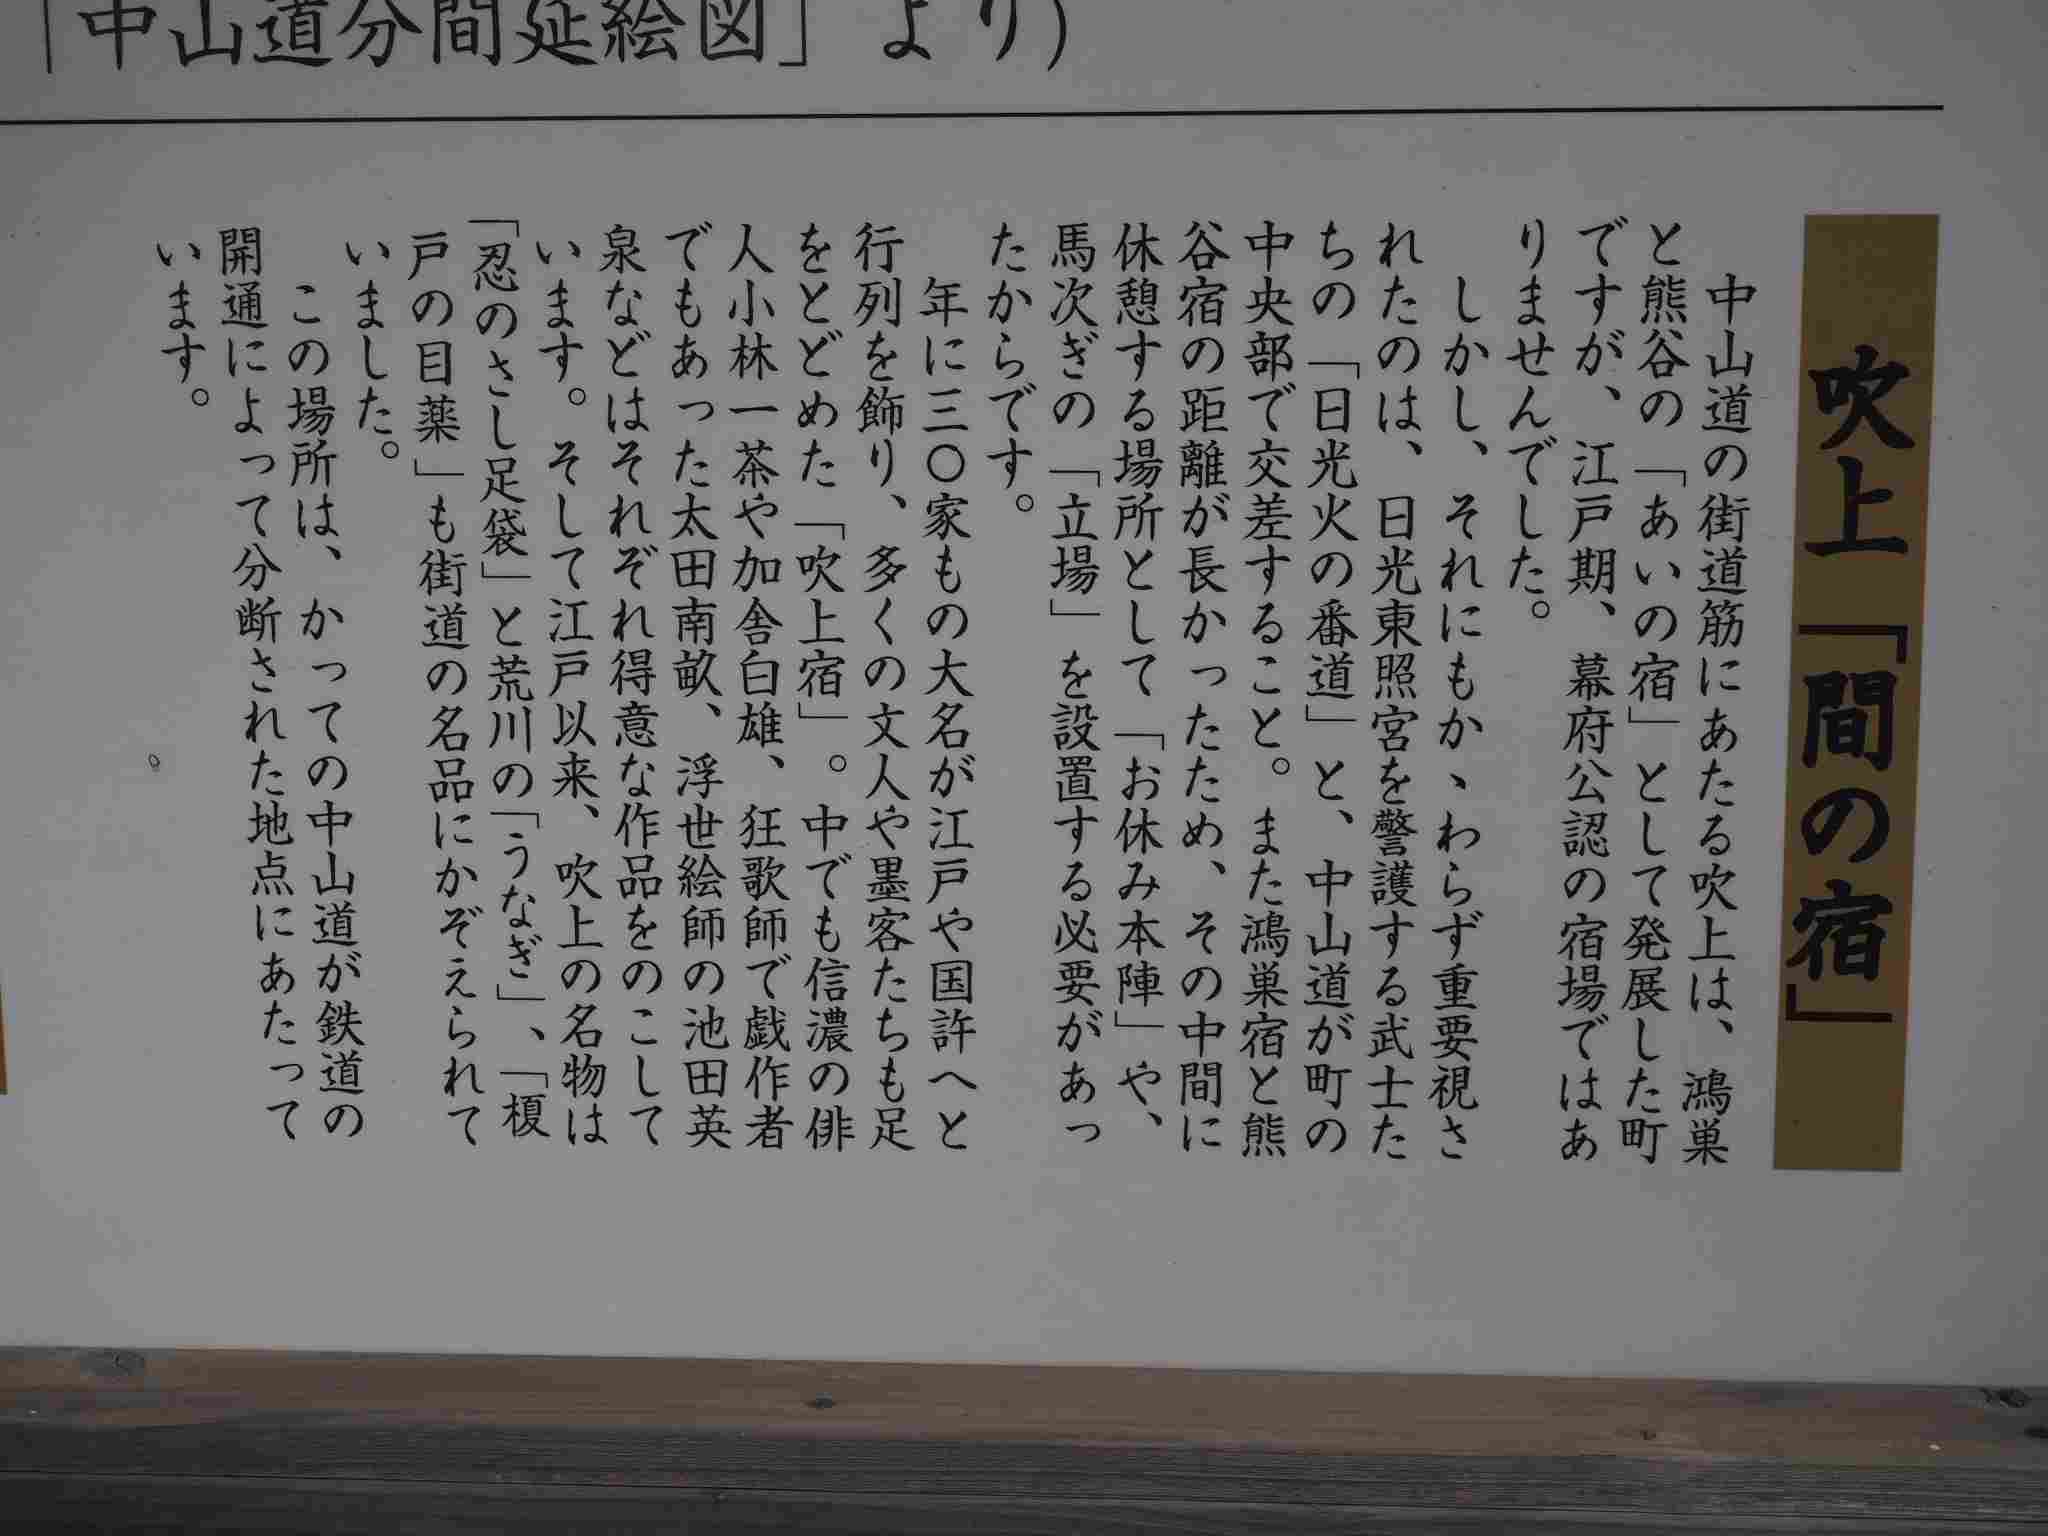 「中山道分間延絵図」より)
吹上「間の宿」
中山道の街道筋にあたる吹上は、鴻巣
と熊谷の「あいの宿」として発展した町
ですが、江戸期、幕府公認の宿場ではあ
りませんでした。
しかし、それにもかゝわらず重要視さ
れたのは、日光東照宮を警護する武士た
ちの「日光火の番道」と、中山道が町の
中央部で交差すること。また鴻巣宿と熊
谷宿の距離が長かったため、その中間に
休憩する場所として「お休み本陣」や、
馬次ぎの「立場」を設置する必要があっ
たからです。
年に三〇家もの大名が江戸や国許へと
行列を飾り、多くの文人や墨客たちも足
をとどめた「吹上宿」。中でも信濃の俳
人小林一茶や加舎白雄、狂歌師で戯作者
でもあった太田南畝、浮世絵師の池田英
泉などはそれぞれ得意な作品をのこして
います。そして江戸以来、吹上の名物は
「忍のさし足袋」と荒川の「うなぎ」、「榎
戸の目薬」も街道の名品にかぞえられて
いました。
この場所は、かっての中山道が鉄道の
開通によって分断された地点にあたって
います。